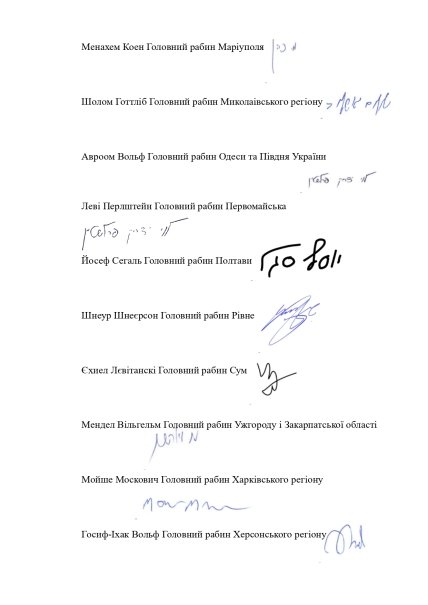 Менахем Коен Головний рабин Маріуполя
Шолом Готтліб Головний рабин Миколаївського регіону
Авроом Вольф Головний рабин Одеси та Півдня України
Леві Перлштейн Головний рабин Первомайська
Йосеф Сегаль Головний рабин Полтави
יוסף סגל
Шнеур Шнеєрсон Головний рабин Рівне
Єхиел Лєвітанскі Головний рабин Сум
Мендел Вільгельм Головний рабин Ужгороду і Закарпатської області
Мойше Москович Головний рабин Харківського регіону
Госиф-Іхак Вольф Головний рабин Херсонського регіону